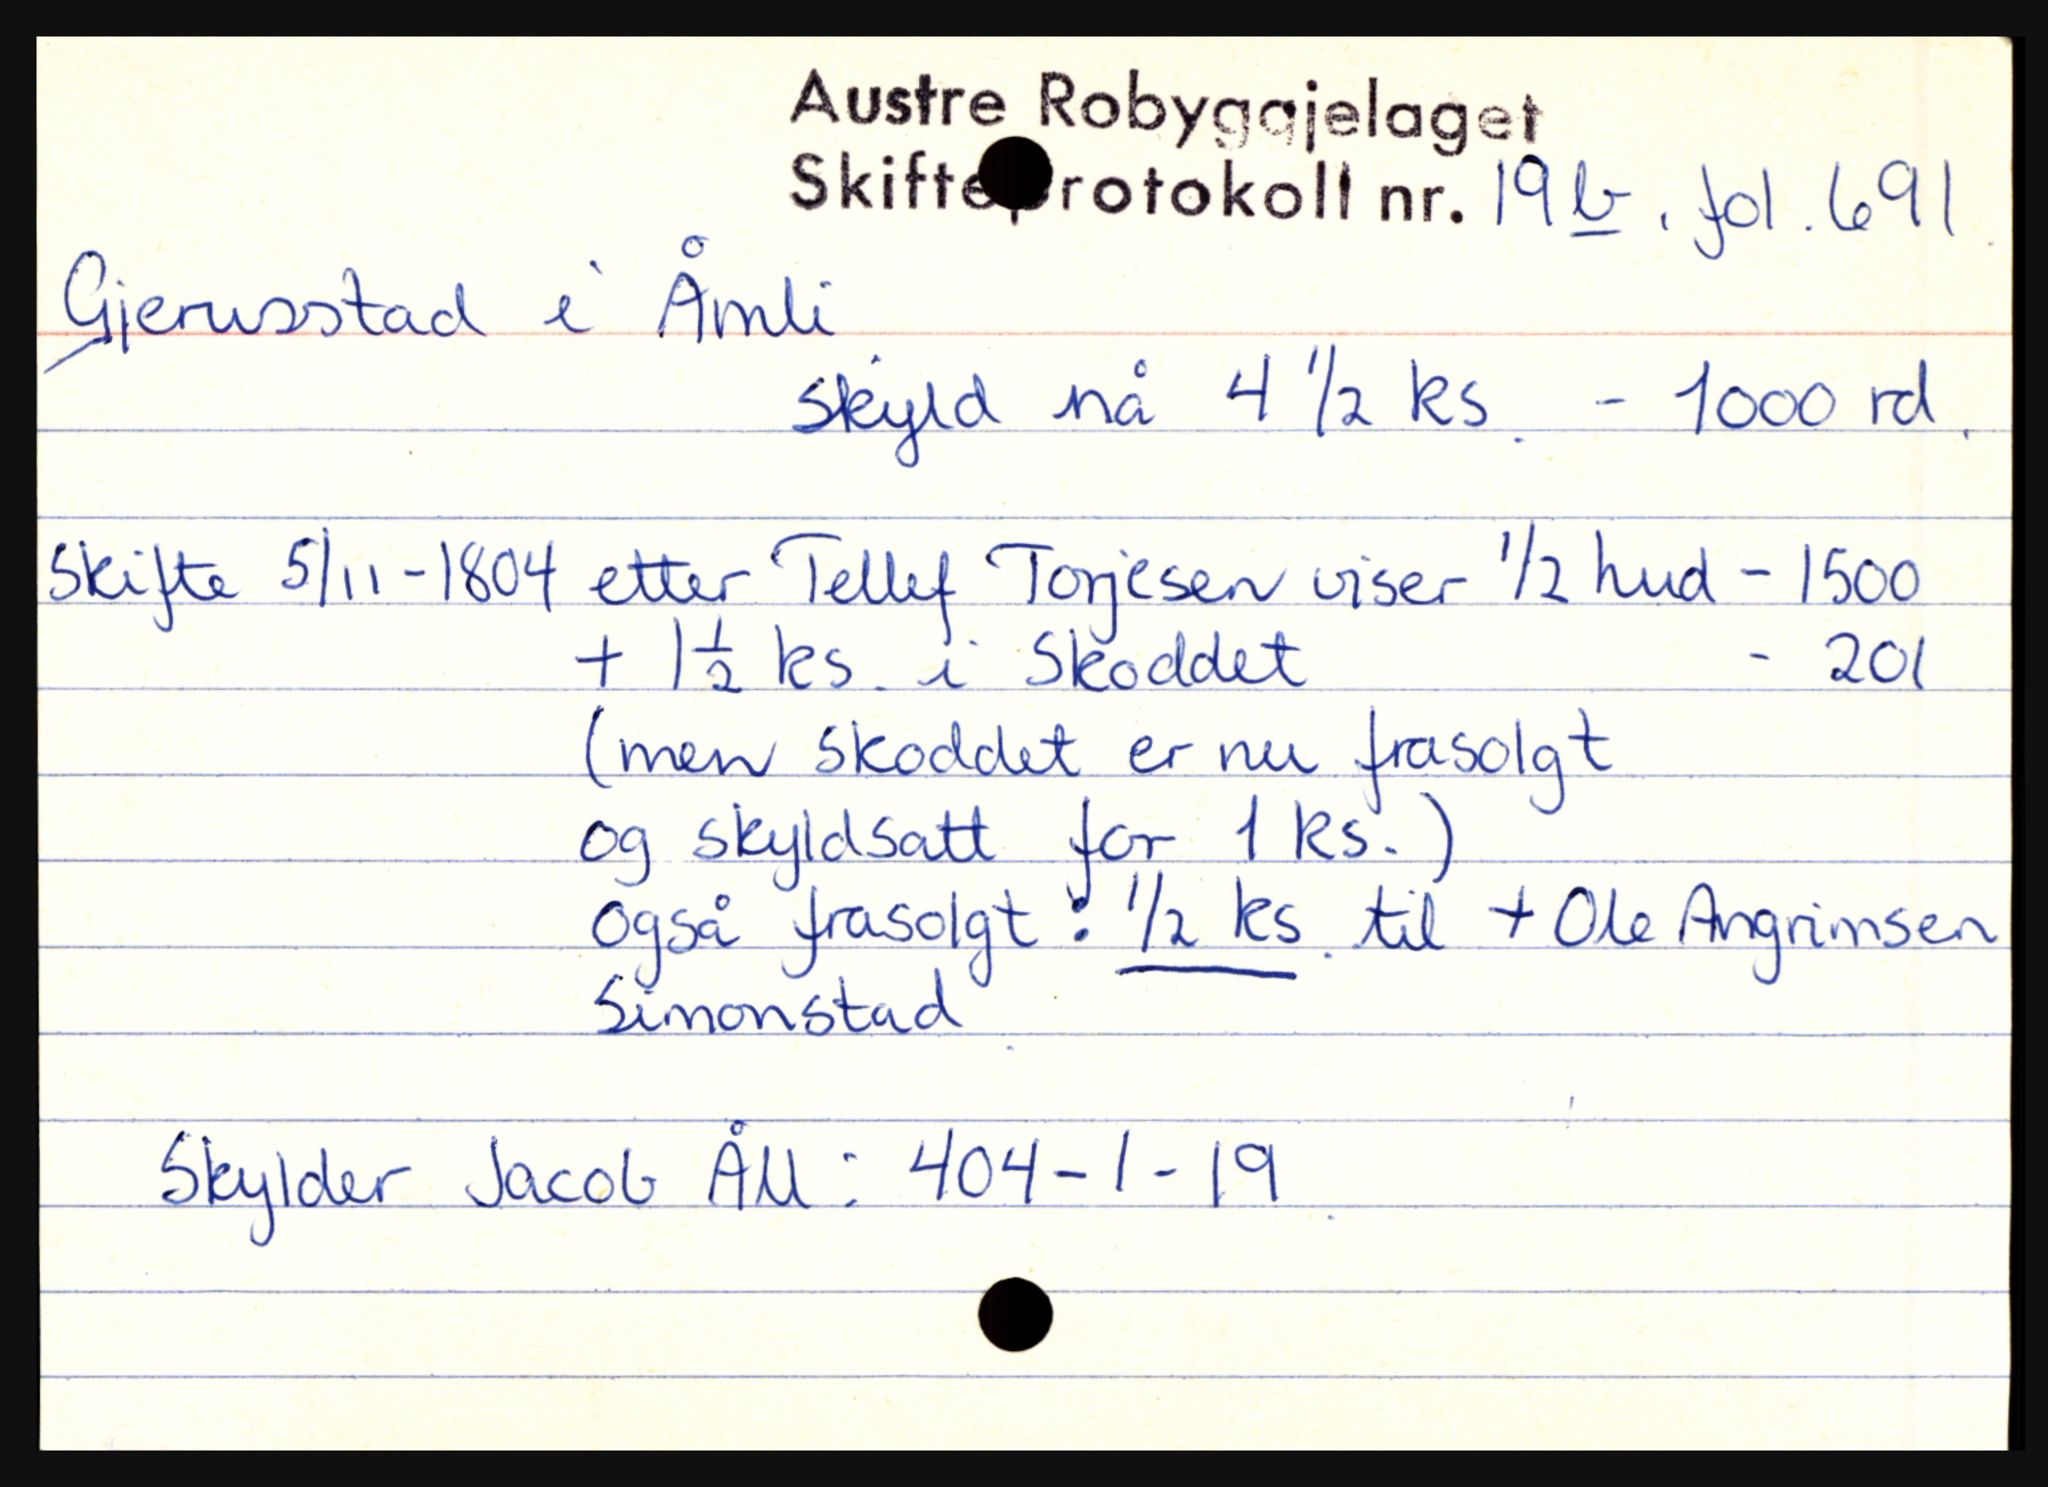 Austre Robyggjelaget
Skifteprotokoll nr. 19b. fol. 691.
Gjerusstad i Åmli
skyld nå 4 1/2 ks. - 1000 rd.
Skifte 5/11-1804 etter Tellef Torjesen viser 1/2 hud - 1500
+ 1 1/2 ks. i Skoddet - 201
(men skoddet er nu frasolgt
og skyldsatt for 1 ks.)
også frasolgt: 1/2 ks. til + Ole Angrimsen
Simonstad
Skylder Jacob Åll: 404-1-19.